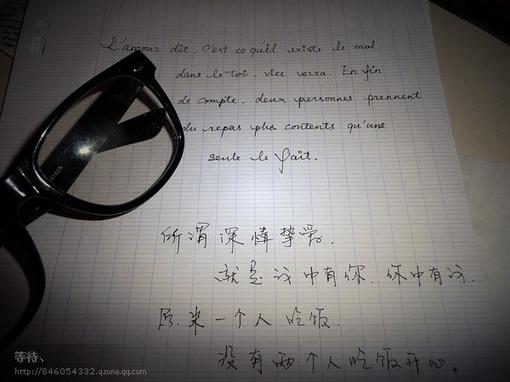 L'amour dit, C'est ce qu'il existe le mal
dans le toi, vice versa. En fin
de compte, deux personnes prennent
du repas plus contents qu'une
seule le fait.
所谓深情挚爱.
就是我中有你.你中有我.
原来一个人吃饭.
没有两个人吃饭开心.
等待、
http://846054332.qzone.qq.com